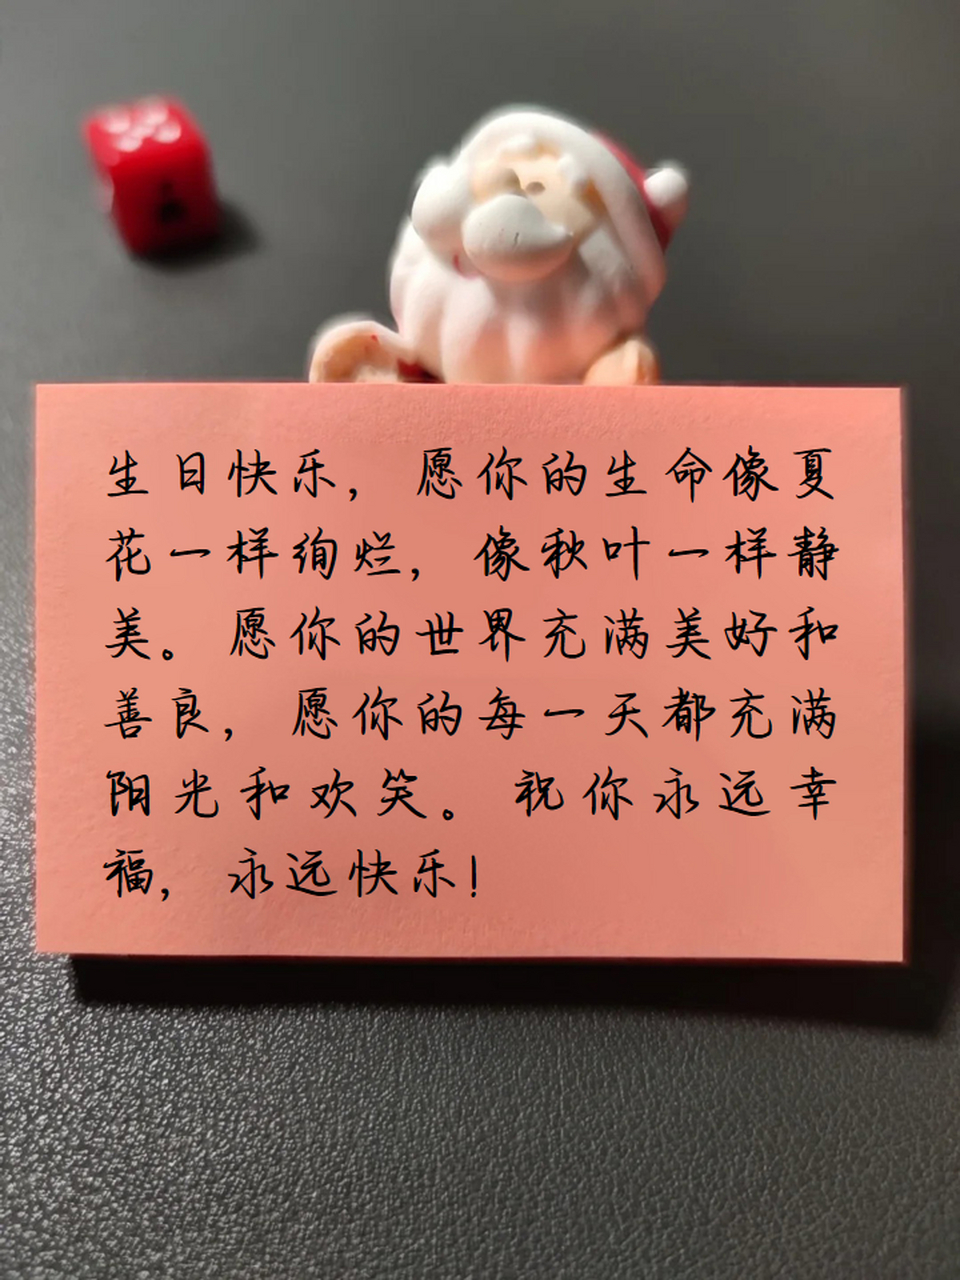 生日快乐，愿你的生命像夏
花一样绚烂，像秋叶一样静
美。愿你的世界充满美好和
善良，愿你的每一天都充满
阳光和欢笑。祝你永远幸
福，永远快乐！